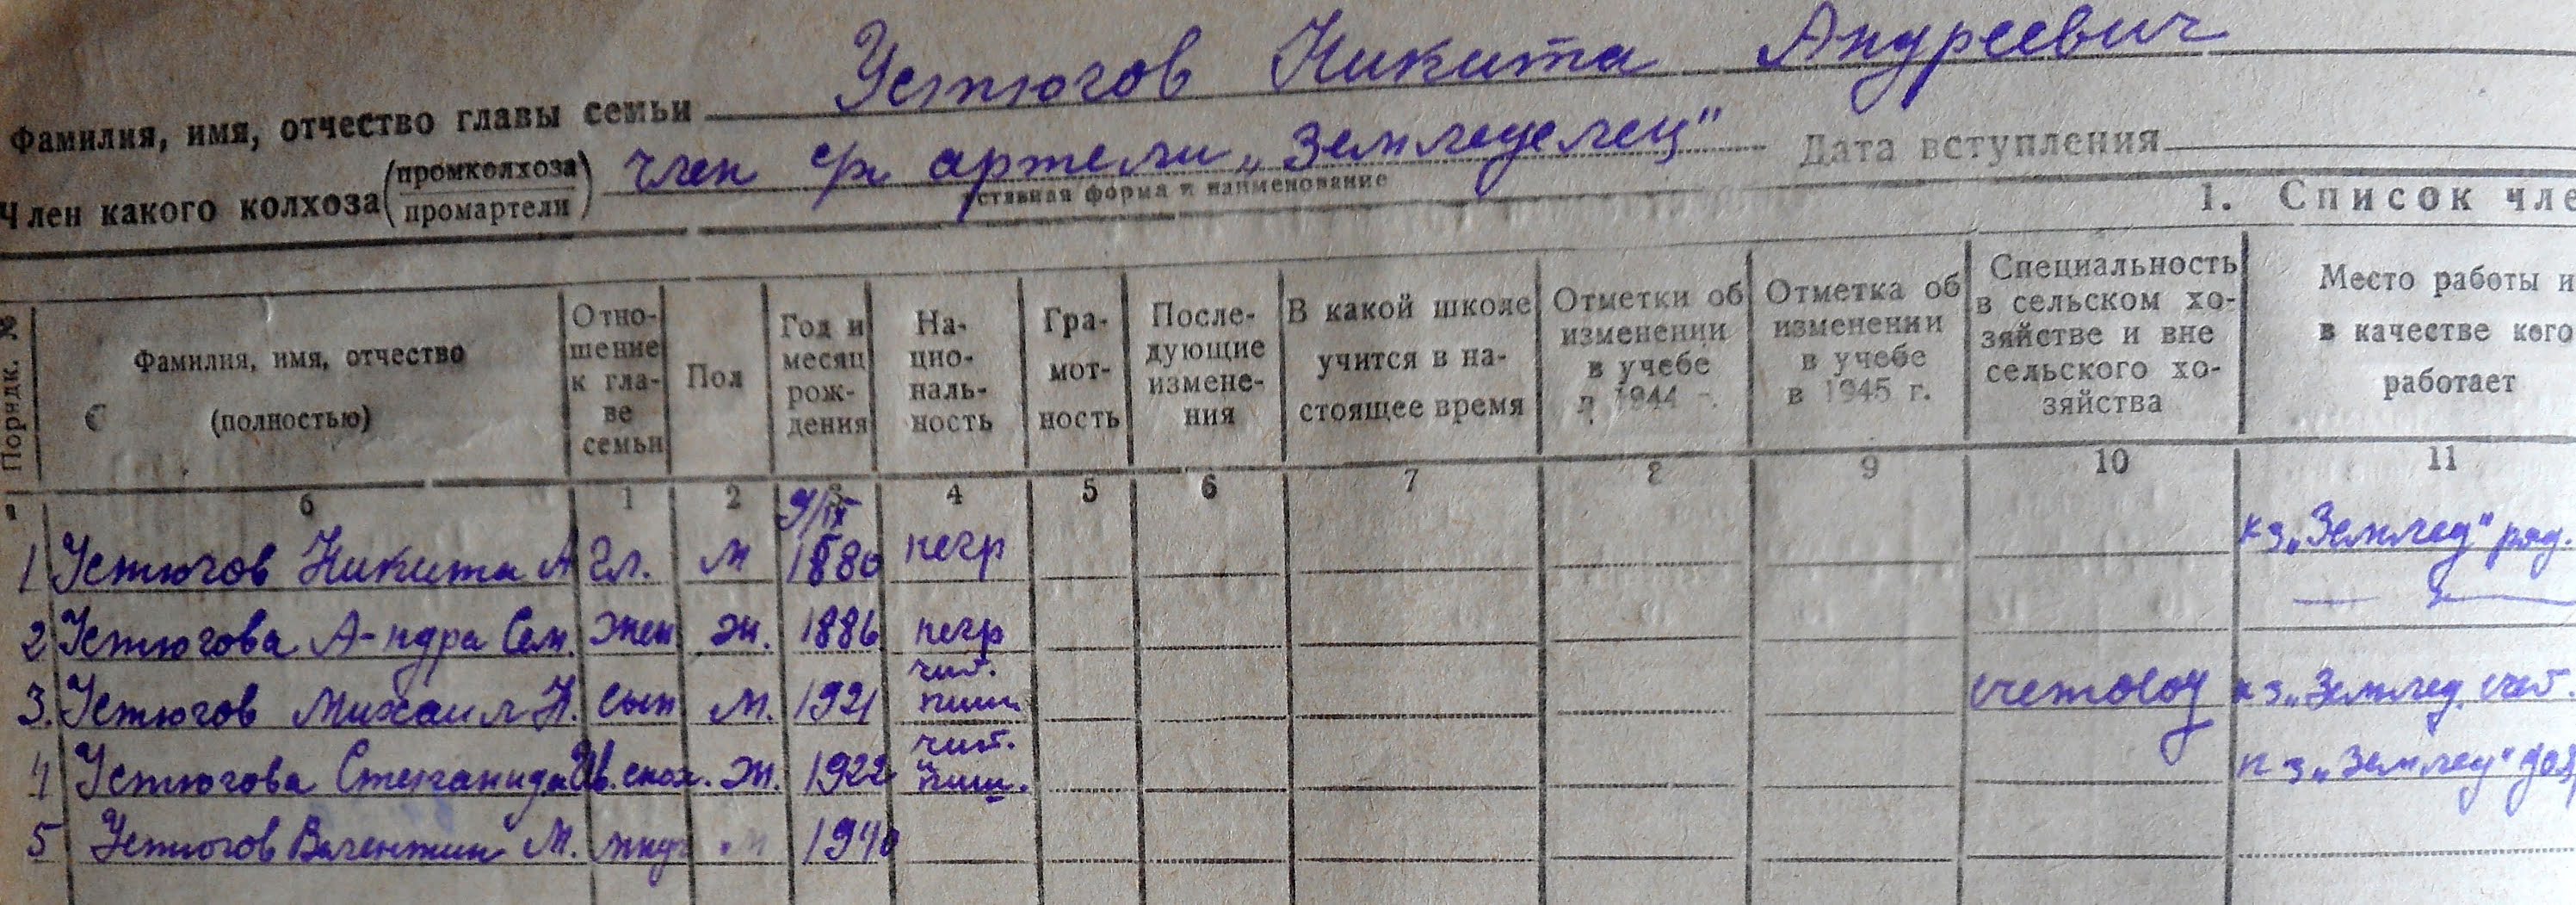 Фамилия, имя, отчество главы семьи Устюгов Никита Андреевич
Член какого колхоза (промколхоза промартели) член с/х артели „Земледелец" Дата вступления
ставная форма и наименование
1. Список чле
Порядк. №
Фамилия, имя, отчество (полностью)
Отно-шение к гла-ве семьи
Пол
Год и месяц рож-дения
На-цио-наль-ность
Гра-мот-ность
После-дующие измене-ния
В какой школе учится в на-стоящее время
Отметки об изменении в учебе в 1944 г.
Отметка об изменении в учебе в 1945 г.
Специальность в сельском хо-зяйстве и вне сельского хо-зяйства
Место работы и в качестве кого работает
б 1 2 3 4 5 6 7 8 9 10 11
1 Устюгов Никита А гл. м 9/IX 1880 негр к з „Землед" ряд.
2 Устюгова А-ндра Сем. жен ж. 1886 негр
3. Устюгов Михаил Н. сын м. 1921 чит. пиш. счетовод к з „Землед. счет
4 Устюгова Степанида Ив. снох. ж. 1922 чит. и пиш. к з „Землед" доя
5 Устюгов Валентин М. внук м 1940